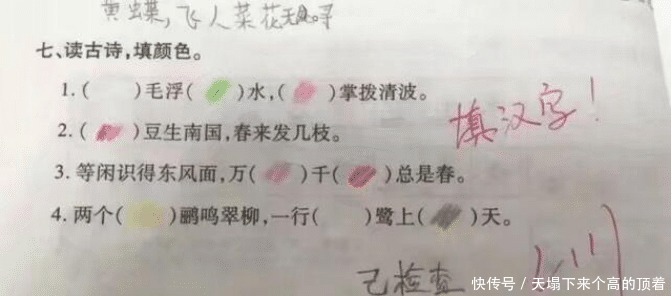 黄蝶，飞人菜花无处寻
七、读古诗，填颜色。
1.（ ）毛浮（ ）水，（ ）掌拨清波。
2.（ ）豆生南国，春来发几枝。
填汉字！
3.等闲识得东风面，万（ ）千（ ）总是春。
4.两个（ ）鹂鸣翠柳，一行（ ）鹭上（ ）天。
已检查
快传号／天塌下来个高的顶着